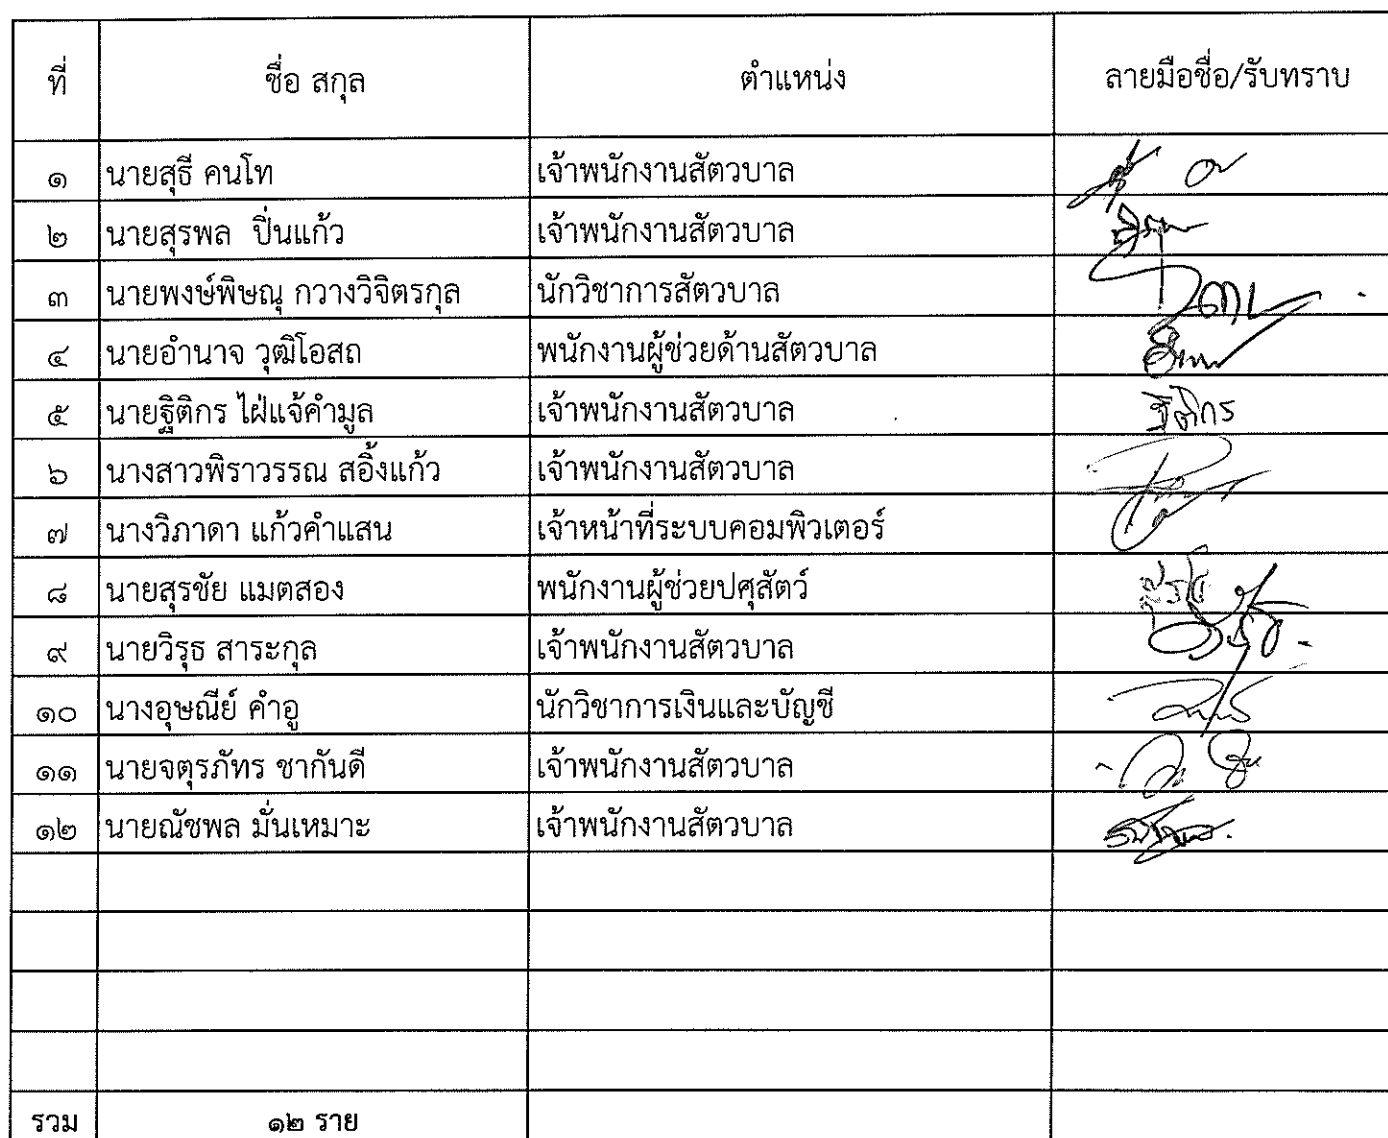 ที่ ชื่อ สกุล ตำแหน่ง ลายมือชื่อ/รับทราบ
๑ นายสุธี คนโท เจ้าพนักงานสัตวบาล
๒ นายสุรพล ปิ่นแก้ว เจ้าพนักงานสัตวบาล
๓ นายพงษ์พิษณุ กวางวิจิตรกุล นักวิชาการสัตวบาล
๔ นายอำนาจ วุฒิโอสถ พนักงานผู้ช่วยด้านสัตวบาล
๕ นายฐิติกร ไฝ่แจ้คำมูล เจ้าพนักงานสัตวบาล ฐิติกร
๖ นางสาวพิราวรรณ สอิ้งแก้ว เจ้าพนักงานสัตวบาล
๗ นางวิภาดา แก้วคำแสน เจ้าหน้าที่ระบบคอมพิวเตอร์
๘ นายสุรชัย แมตสอง พนักงานผู้ช่วยปศุสัตว์
๙ นายวิรุธ สาระกุล เจ้าพนักงานสัตวบาล
๑๐ นางอุษณีย์ คำอู นักวิชาการเงินและบัญชี
๑๑ นายจตุรภัทร ชากันดี เจ้าพนักงานสัตวบาล
๑๒ นายณัชพล มั่นเหมาะ เจ้าพนักงานสัตวบาล
รวม ๑๒ ราย